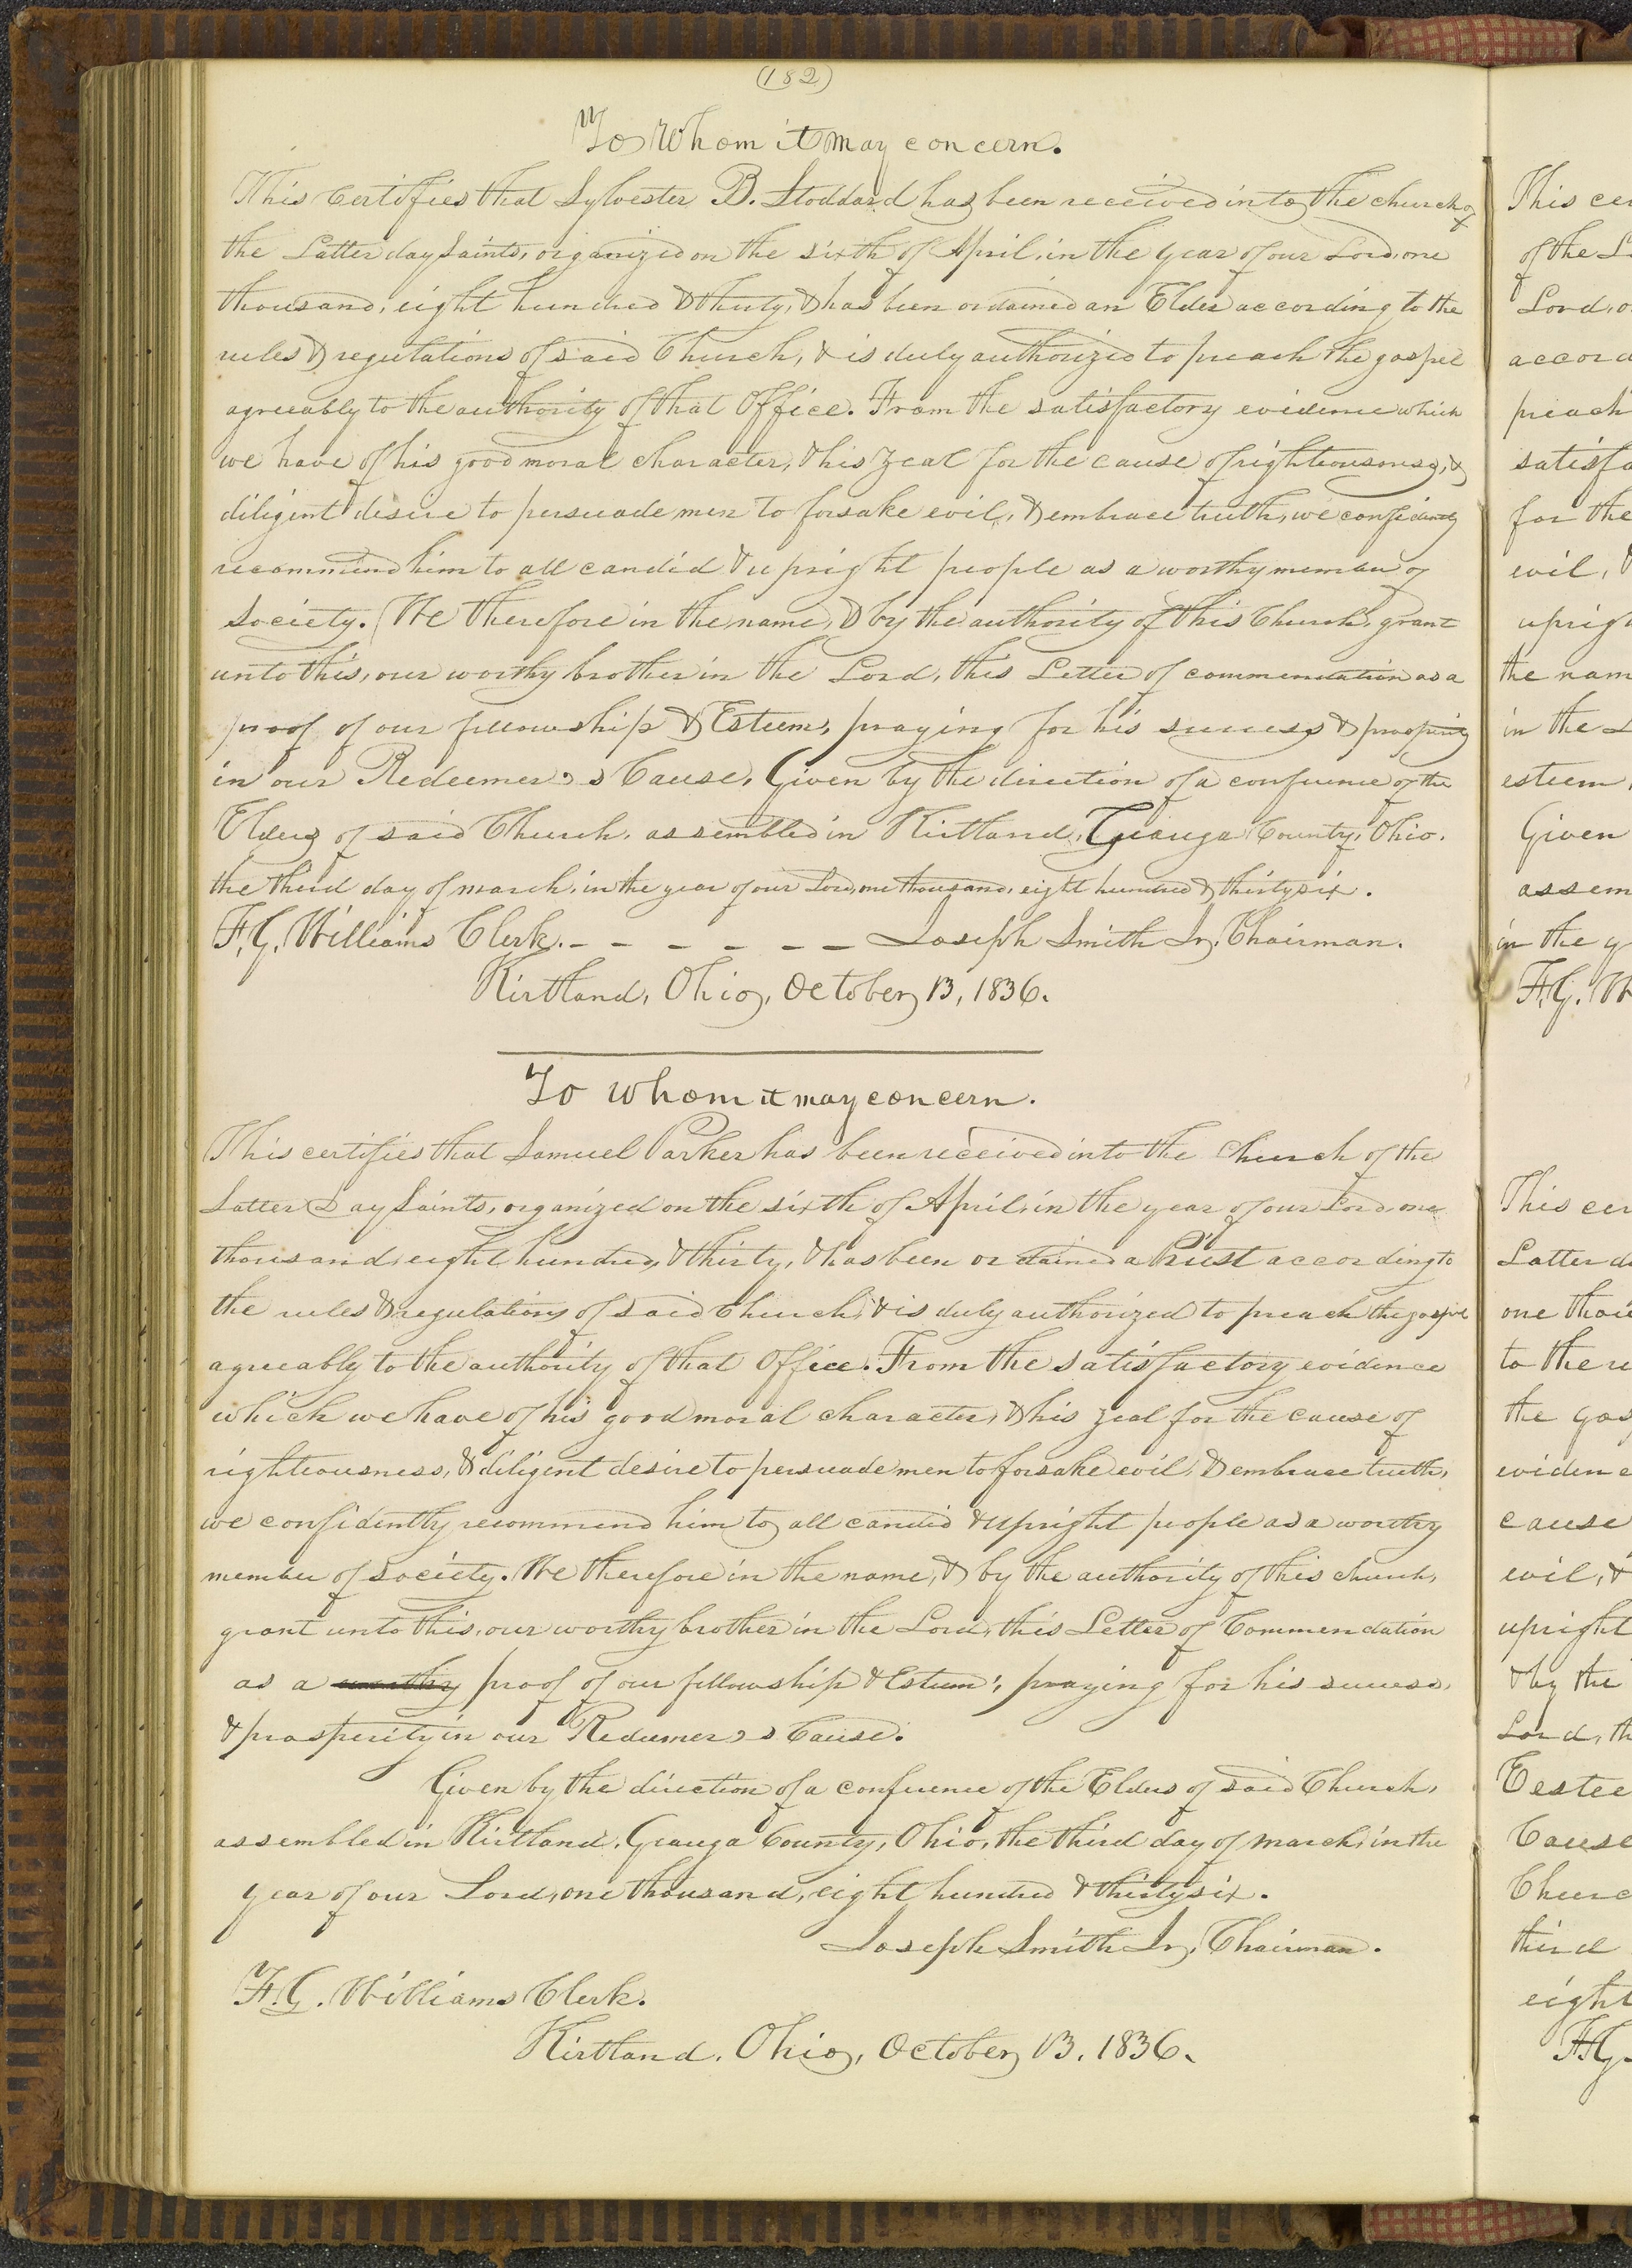 (182)
To Whom it may concern.
This Certifies that Sylvester B. Stoddard has been received into the church of
the Latter day Saints, organized on the sixth of April, in the year of our Lord, one
thousand, eight hundred & thirty, & has been ordained an Elder according to the
rules & regulations of said Church, & is duly authorized to preach the gospel
agreeably to the authority of that Office. From the satisfactory evidence which
we have of his good moral character, & his zeal for the cause of righteousness, &
diligent desire to persuade men to forsake evil, & embrace truth, we confidently
recommend him to all candid & upright people as a worthy member of
Society. We therefore in the name, & by the authority of this Church, grant
unto this, our worthy brother in the Lord, this Letter of commendation as a
proof of our fellowship & Esteem, praying for his success & prosperity
in our Redeemer's Cause. Given by the direction of a conference of the
Elders of said Church, assembled in Kirtland, Geauga County, Ohio.
the third day of march, in the year of our Lord, one thousand, eight hundred & thirty six.
F. G. Williams Clerk. - - - - - - Joseph Smith Jr, Chairman.
Kirtland, Ohio, October 13, 1836.
To whom it may concern.
This certifies that Samuel Parker has been received into the Church of the
Latter Day Saints, organized on the sixth of April, in the year of our Lord, one
thousand, eight hundred, & thirty, & has been ordained a Priest according to
the rules & regulations of said Church, & is duly authorized to preach the gospel
agreeably to the authority of that Office. From the satisfactory evidence
which we have of his good moral character, & his zeal for the cause of
righteousness, & diligent desire to persuade men to forsake evil, & embrace truth,
we confidently recommend him to all candid & upright people as a worthy
member of society. We therefore in the name, & by the authority of this church,
grant unto this, our worthy brother in the Lord, this Letter of Commendation
as a worthy proof of our fellowship & Esteem; praying for his success,
& prosperity in our Redeemer's Cause.
Given by the direction of a conference of the Elders of said Church,
assembled in Kirtland, Geauga County, Ohio, the third day of march, in the
year of our Lord, one thousand, eight hundred & thirty six.
Joseph Smith Jr, Chairman.
F. G. Williams Clerk.
Kirtland, Ohio, October 13, 1836.
This cer
of the L
Lord, o
accord
preach
satisfa
for the
evil, &
uprig
the nam
in the L
esteem,
Given
assem
in the y
F. G. W
This cer
Latter d
one thou
to the ru
the gos
evidenc
cause
evil, &
upright
& by the
Lord, th
Eestee
Cause
Churc
third
eight
F. G.